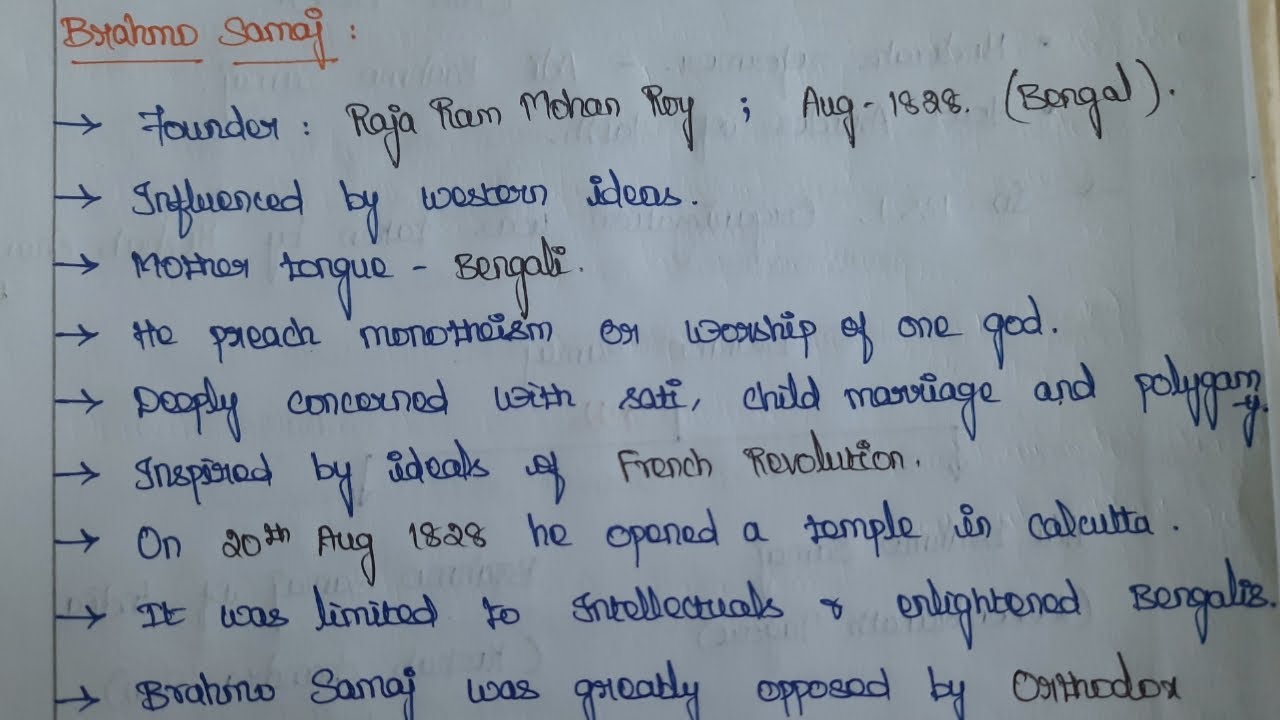 Brahmo Samaj :
→ Founder : Raja Ram Mohan Roy ; Aug - 1828. (Bengal).
→ Influenced by western ideas.
→ Mother tongue - Bengali.
→ He preach monotheism or worship of one god.
→ Deeply concerned with sati, child marriage and polygamy.
→ Inspired by ideals of French Revolution.
→ On 20th Aug 1828 he opened a temple in Calcutta.
→ It was limited to Intellectuals & enlightened Bengalis.
→ Brahmo Samaj was greatly opposed by Orthodox